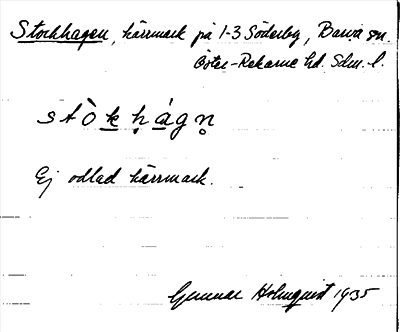 Stockhagen, kärrmark på 1-3 Söderby, Barva sn.
Öster-Rekarne hd. Sdm. l.
stòkḥágn̥
Ej odlad kärrmark.
Gunnar Holmquist 1935